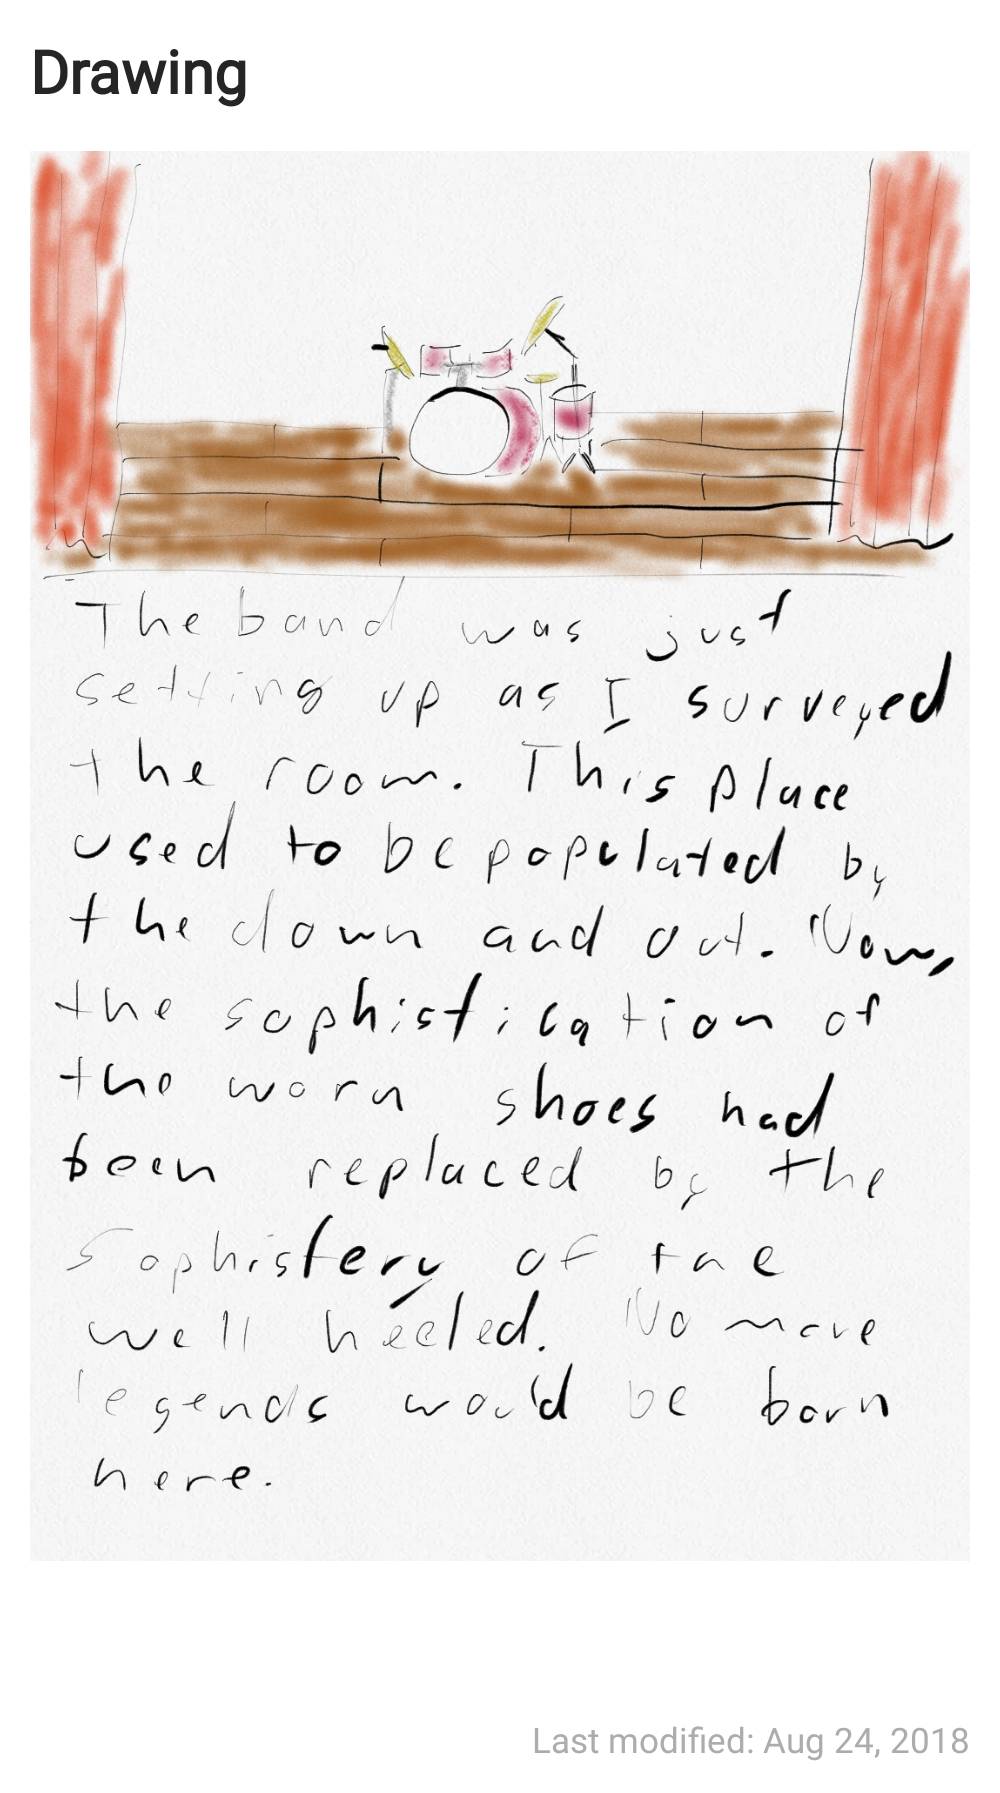 Drawing
The band was just
setting up as I surveyed
the room. This place
used to be populated by
the down and out. Now,
the sophistication of
the worn shoes had
been replaced by the
sophistery of the
well heeled. No more
legends would be born
here.
Last modified: Aug 24, 2018